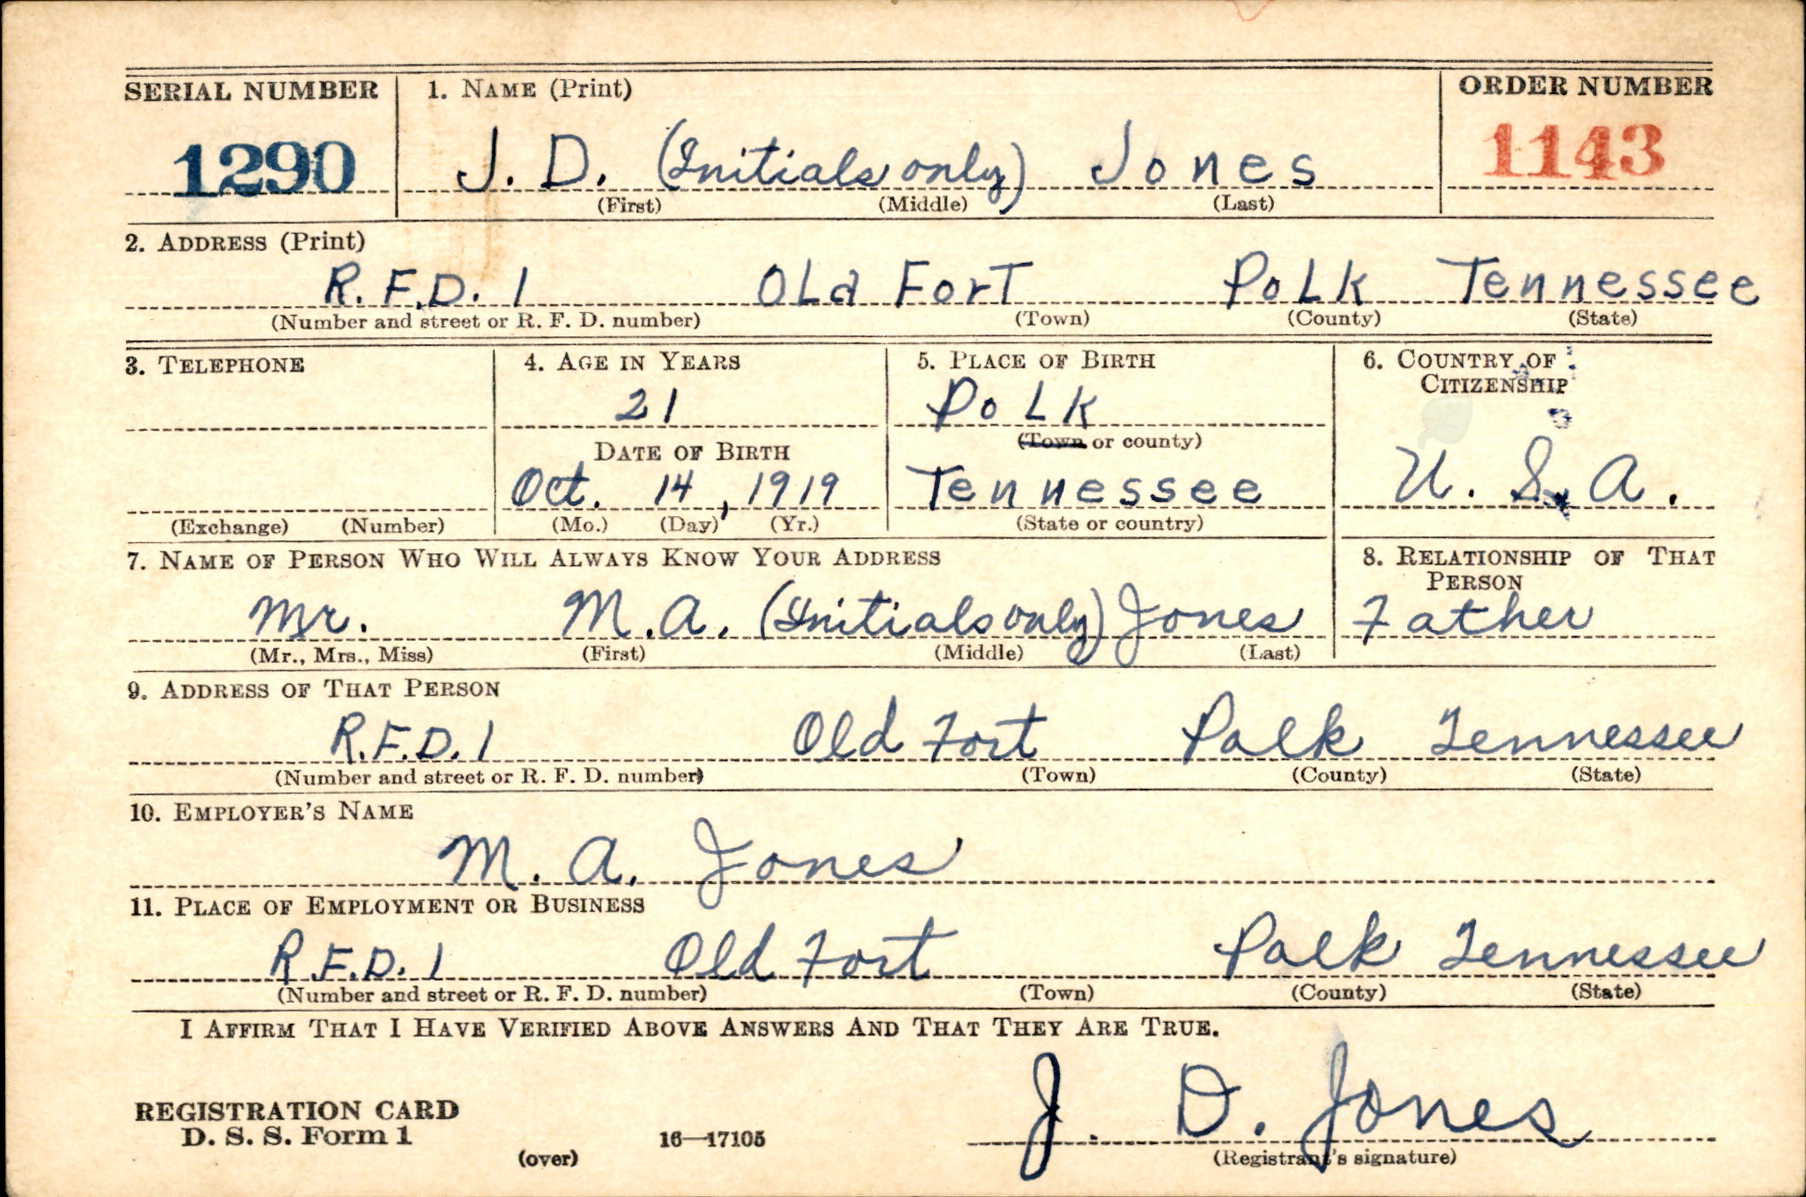 SERIAL NUMBER 1. NAME (Print) ORDER NUMBER
1290 J. D. (Initials only) Jones 1143
(First) (Middle) (Last)
2. ADDRESS (Print)
R.F.D. 1 Old Fort Polk Tennessee
(Number and street or R. F. D. number) (Town) (County) (State)
3. TELEPHONE 4. AGE IN YEARS 5. PLACE OF BIRTH 6. COUNTRY OF
CITIZENSHIP
21 Polk
(Town or county)
DATE OF BIRTH
Oct. 14, 1919 Tennessee U. S. A.
(Exchange) (Number) (Mo.) (Day) (Yr.) (State or country)
7. NAME OF PERSON WHO WILL ALWAYS KNOW YOUR ADDRESS 8. RELATIONSHIP OF THAT
PERSON
Mr. M. A. (Initials only) Jones Father
(Mr., Mrs., Miss) (First) (Middle) (Last)
9. ADDRESS OF THAT PERSON
R.F.D. 1 Old Fort Polk Tennessee
(Number and street or R. F. D. number) (Town) (County) (State)
10. EMPLOYER'S NAME
M. A. Jones
11. PLACE OF EMPLOYMENT OR BUSINESS
R.F.D. 1 Old Fort Polk Tennessee
(Number and street or R. F. D. number) (Town) (County) (State)
I AFFIRM THAT I HAVE VERIFIED ABOVE ANSWERS AND THAT THEY ARE TRUE.
J. D. Jones
REGISTRATION CARD
D. S. S. Form 1 16—17105
(over) (Registrant's signature)